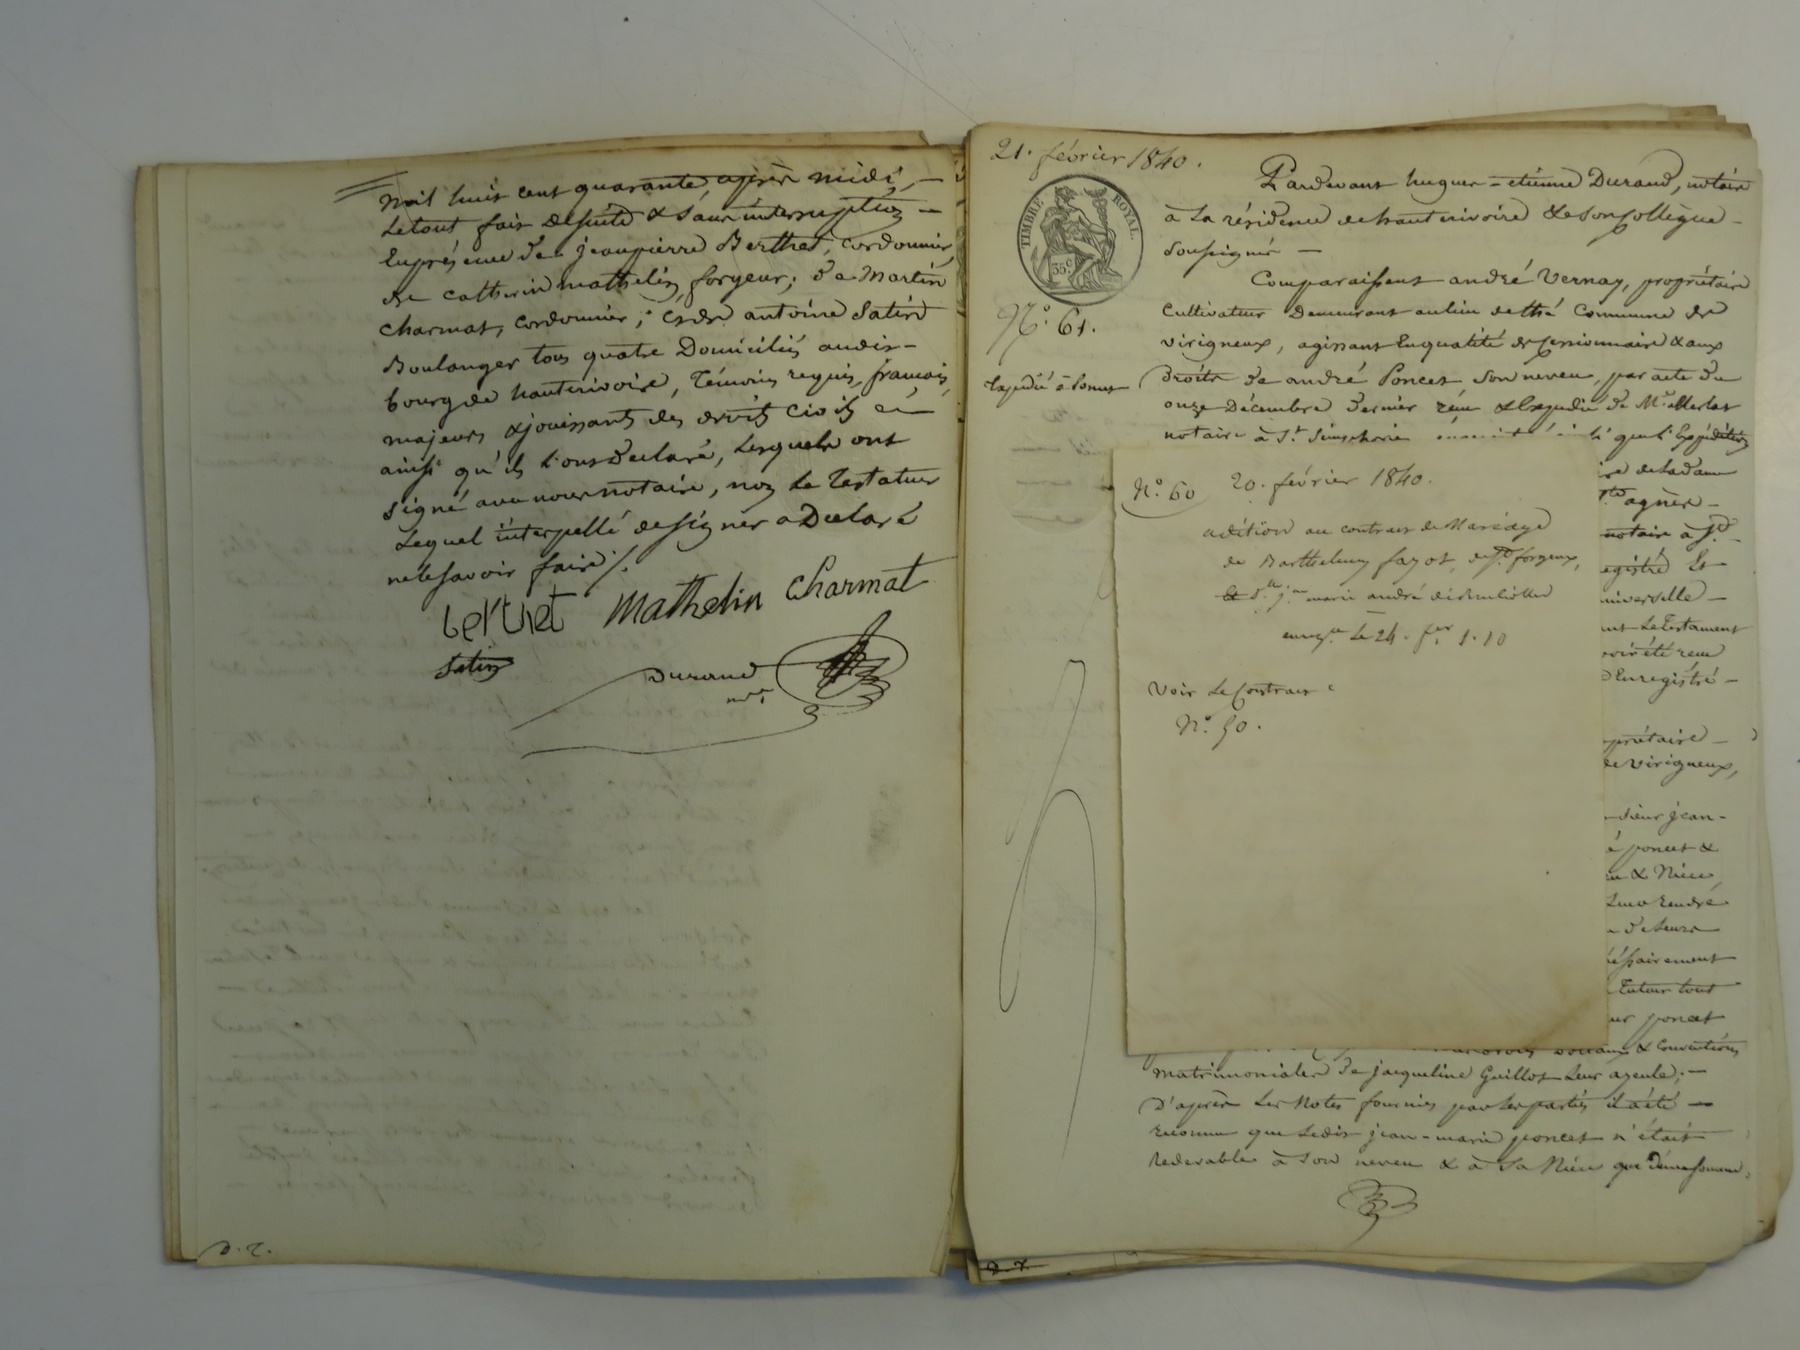 mil huit cent quarante, après midi, —
Le tout fait de suite & sans interruption —
En présence de jeanpierre Berthet, cordonnier,
de catherin mathelin forgeur; de Martin
charmat, cordonnier; et de antoine Satin
Boulanger tous quatre Domiciliés audit —
bourg de hauterivoire, Témoins requis, français,
majeurs & jouissants des droits civils
ainsi qu'ils l'ont declaré, Lesquels ont
signé avec nous notaire, non Le Testateur
Lequel interpellé de signer a Declaré
ne le savoir faire /.
berthet Mathelin Charmat
Satin
Durand
nre
D. 2.
21. février 1840.
TIMBRE ROYAL.
35 c
N.° 61.
Expédié à Poncet
Pardevant hugues = etienne Durand, notaire
à la résidence de hauterivoire & son collègue —
soussigné —
Comparaissent andré Vernay, propriétaire
Cultivateur Demeurant au lieu de thé Commune de
virigneux, agissant En qualité de cessionnaire & aux
Droits de andré Poncet son neveu, par acte du
onze Décembre dernier reçu & Expedié de Me Merlat
notaire à St. Simphorien que l'Expédition
de Ladame
agnès —
notaire à St. —
egistré Le
niverselle —
ant Le Testament
voir été reçu
Enregistré —
priétaire —
de virigneux,
sieur jean-
é poncet &
eu & Nièce,
Leur Rendre
de Leurs
essairement
Tuteur tout
ur poncet
& Conventions
Matrimoniales de jacqueline Guillot Leur ayeule; —
D'après Les Notes fournies par les parties il a été —
Reconnu que Ledit jean-marie poncet n'était
Redevable à son neveu & à Sa Nièce que
N.° 60 20. février 1840.
adition au contrat de Mariage
de Barthelemy fayot, de St. forgeux,
& Dlle jne marie andré
enregt. Le 24. fer 1.10
Voir Le Contrat
N.° 50.